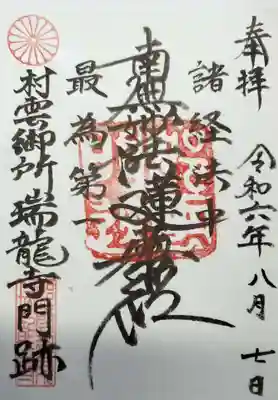 奉拝
令和六年八月七日
諸経法中
南無妙法蓮華経
最為第一
村雲御所瑞龍寺門跡